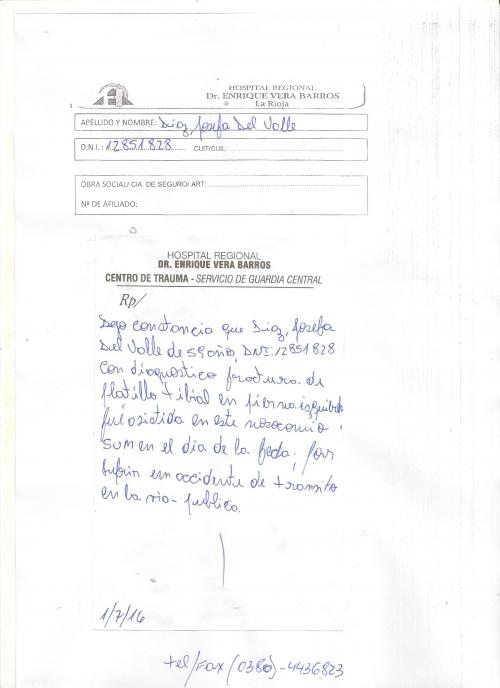 HOSPITAL REGIONAL
Dr. ENRIQUE VERA BARROS
La Rioja
APELLIDO Y NOMBRE: Diaz, Josefa Del Valle
D.N.I.: 12851828 CUIT/CUIL:
OBRA SOCIAL/ CIA. DE SEGURO/ ART:
Nº DE AFILIADO:
HOSPITAL REGIONAL
DR. ENRIQUE VERA BARROS
CENTRO DE TRAUMA - SERVICIO DE GUARDIA CENTRAL
Rp/
Dejo constancia que Diaz, Josefa
Del Valle de 59 año, DNI: 12851828
con diagnostico fractura de
platillo tibial en pierna izquierda
fue asistida en este nosocomio
en el dia de la fecha, por
sufrir un accidente de transito
en la via publica.
1/7/16
tel/Fax (0380)-4436823